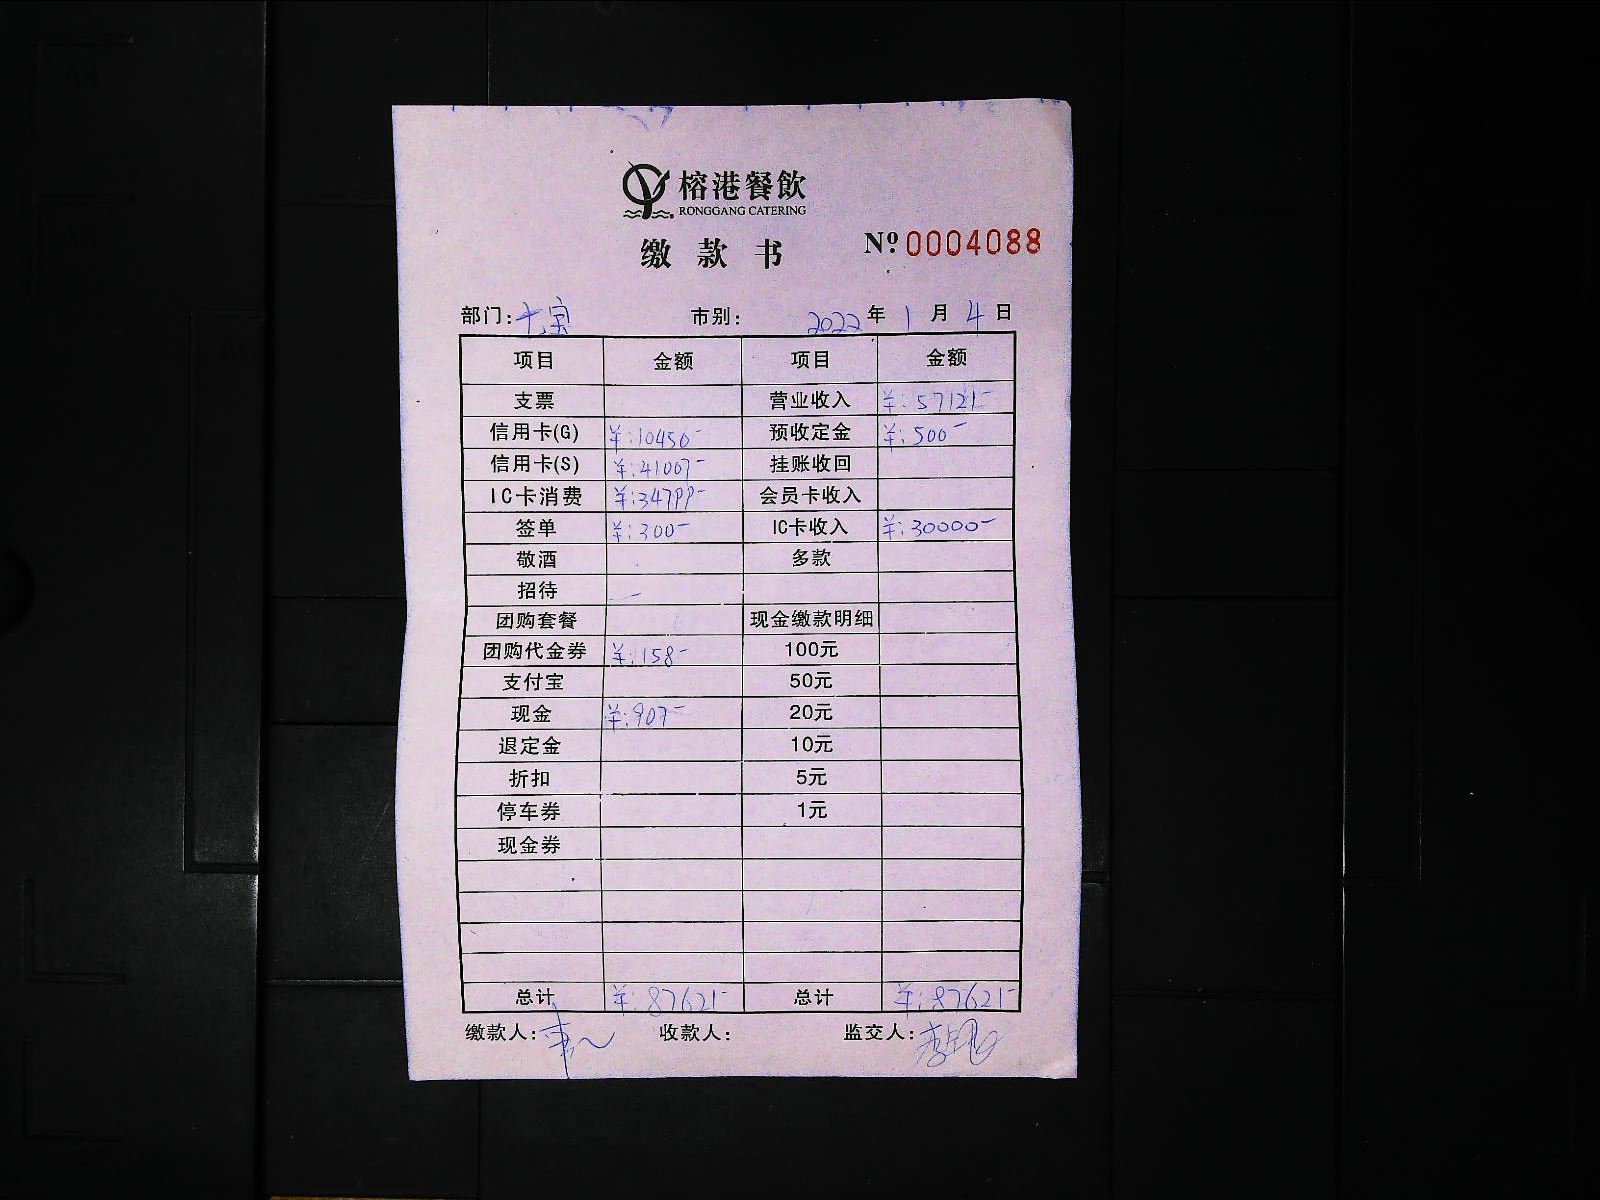 榕港餐飲
RONGGANG CATERING
缴款书 Nº 0004088
部门:七宝 市别: 2022年1月4日
项目 金额 项目 金额
支票 营业收入 ¥:57121-
信用卡(G) ¥:10450- 预收定金 ¥:500-
信用卡(S) ¥:41007- 挂账收回
IC卡消费 ¥:34799- 会员卡收入
签单 ¥:300- IC卡收入 ¥:30000-
敬酒 多款
招待
团购套餐 现金缴款明细
团购代金券 ¥:158- 100元
支付宝 50元
现金 ¥:907- 20元
退定金 10元
折扣 5元
停车券 1元
现金券
总计 ¥:87621- 总计 ¥:87621-
缴款人: 收款人: 监交人: